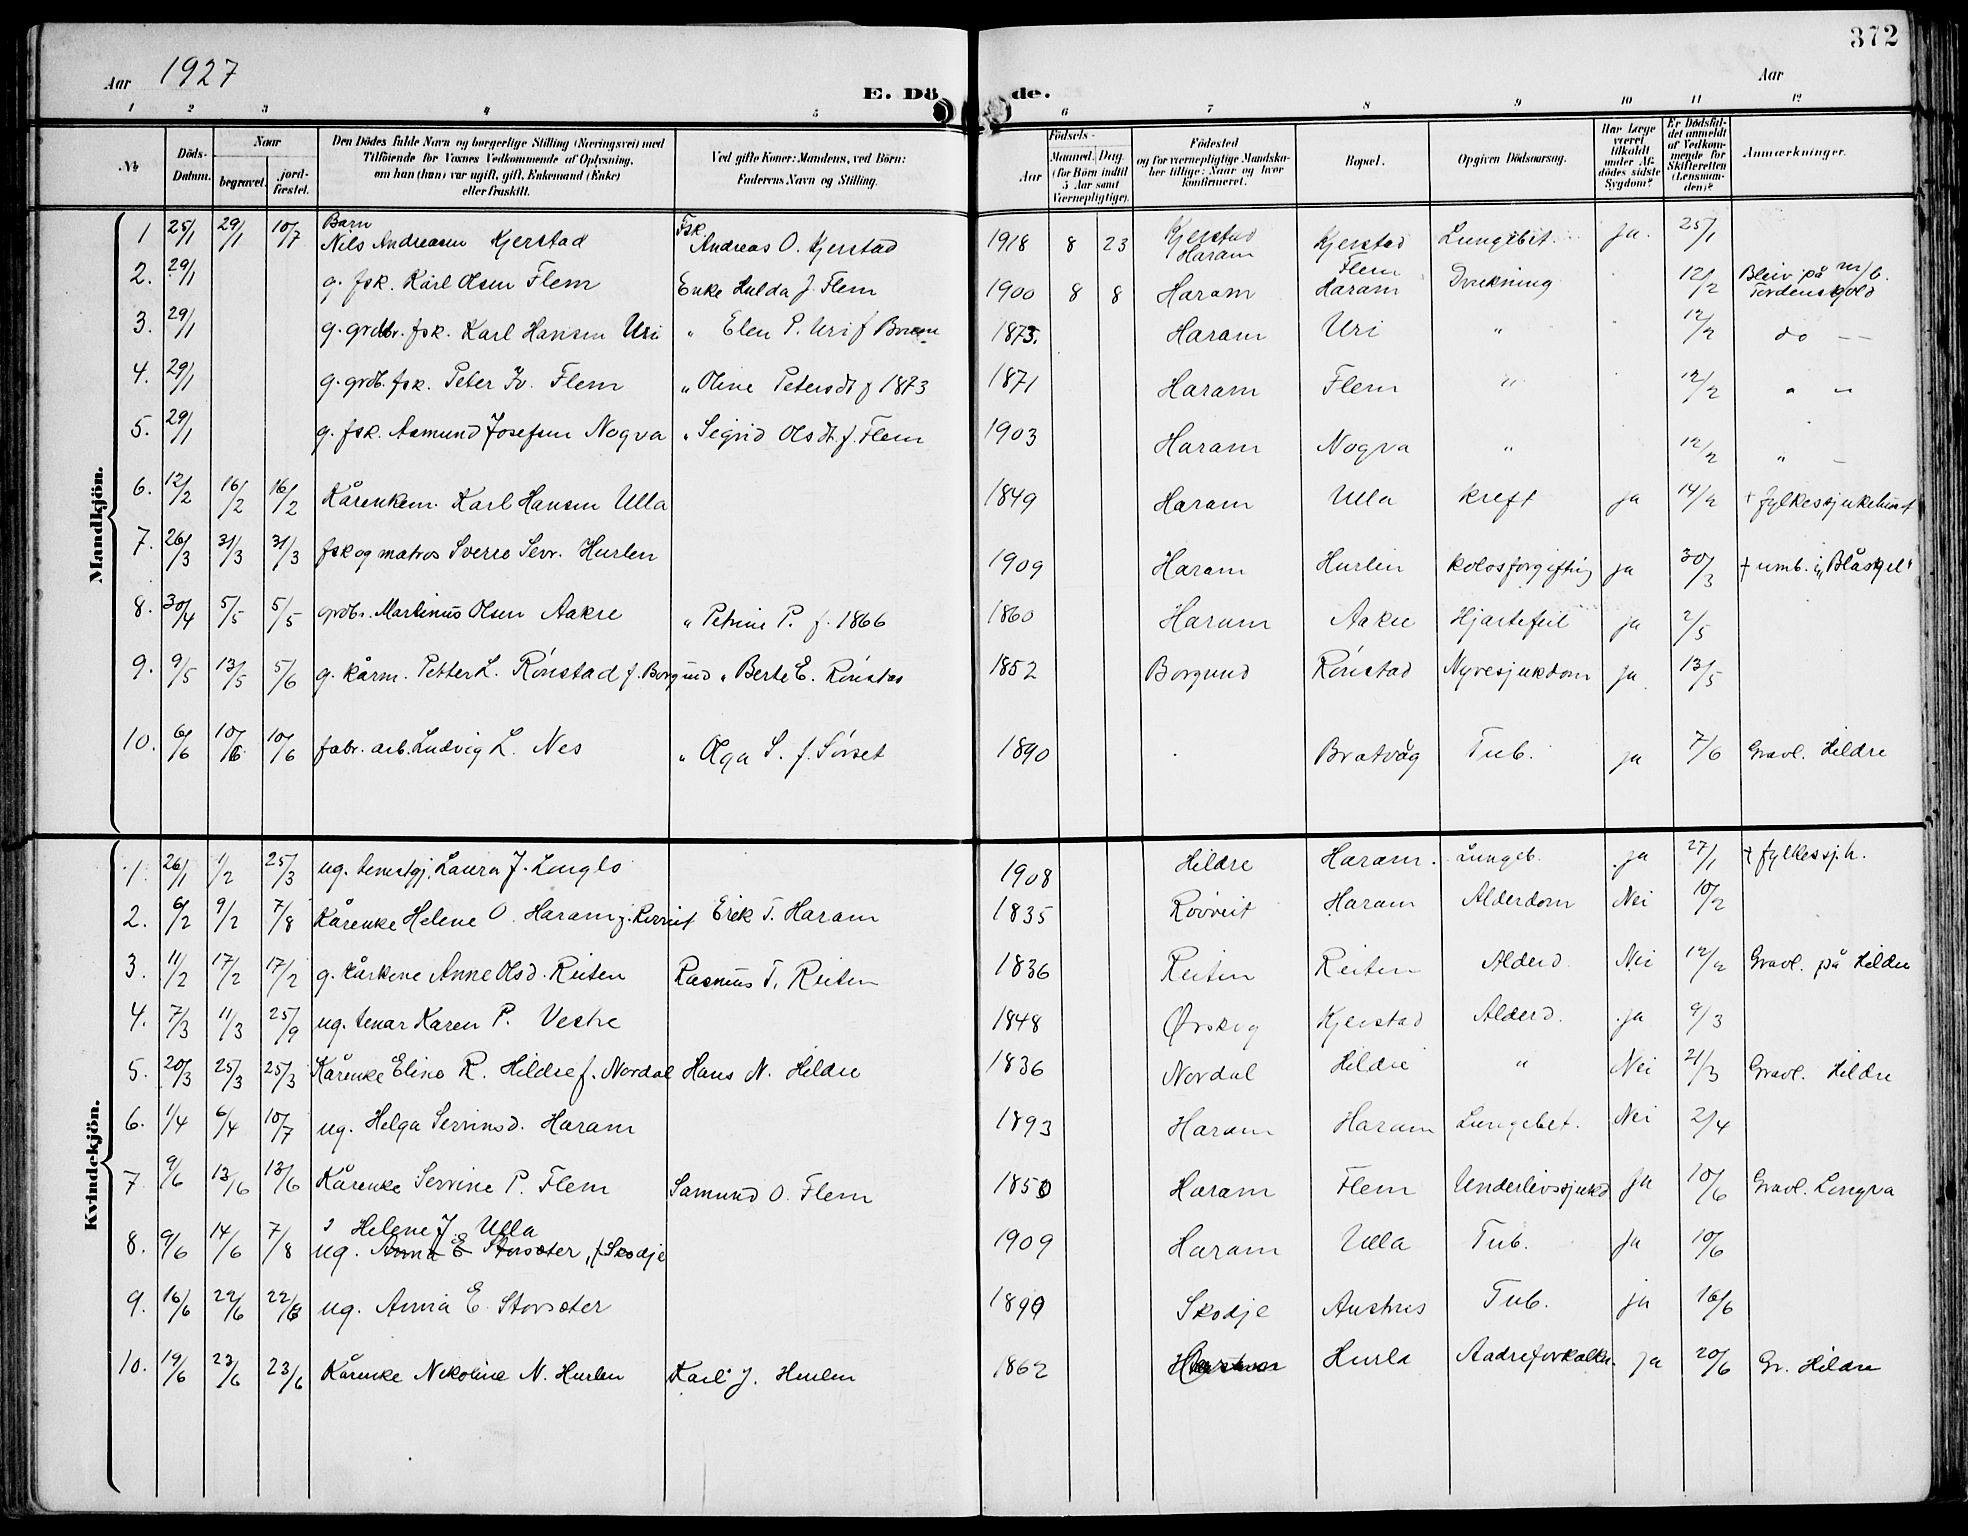 372
Aar 1927
Aar
E. Dö de.
1 2 3 4 5 6 7 8 9 10 11 12
No.
Döds-Datum.
Naar
begravet.
jord-fæstet.
Den Dödes fulde Navn og borgerlige Stilling (Næringsvei) med
Tilföiende for Voxnes Vedkommende af Oplysning,
om han (hun) var ugift, gift, Enkemand (Enke)
eller fraskilt.
Ved gifte Koner: Mandens, ved Börn:
Faderens Navn og Stilling.
Födsels-
Aar
Maaned. Dag.
(for Börn indtil
5 Aar samt
Værnepligtige).
Födested
og for værnepligtige Mandska-
ber tillige: Naar og hvor
konfirmeret.
Bopæl.
Opgiven Dödsaarsag.
Har Læge
været
tilkaldt
under Af-
dödes sidste
Sygdom?
Er Dødsfal-
det anmeldt
af Vedkom-
mende for
Skifteretten
(Lensman-
den)?
Anmærkninger.
Mandkjön.
1 25/1 29/1 10/7 Barn Nils Andreasen Kjerstad Fsk. Andreas O. Kjerstad 1918 8 23 Kjerstad Haram Kjerstad Lungebet. ja. 25/1
2. 29/1 g. fsk. Karl Olsen Flem Enke Hulda J. Flem 1900 8 8 Haram Flem Haram Drukning 12/2 Bleiv på m/b. Tordenskjold
3. 29/1 g. grdbr. fsk. Karl Hansen Uri " Elen P. Uri f 1873. Haram Uri " 12/2 do —
4. 29/1 g. grdb. fsk. Peter Iv. Flem " Oline Petersdt f 1873 1871 Haram Flem " 12/2 " —
5. 29/1 g. fsk. Aamund Josefsen Nogva " Segrid Olsdt. f. Flem 1903 Haram Nogva " 12/2 " —
6. 12/2 16/2 16/2 Kårenkem. Karl Hansen Ulla 1849 Haram Ulla kreft ja 14/2 † fylkessjukehuset
7. 26/3 31/3 31/3 fsk og matros Sverre Sevr. Hurlen 1909 Haram Hurlen kolosforgifting ja 30/3 † umb. i „Blåskjel"
8. 30/4 5/5 5/5 grdbr. Martinus Olsen Aakre " Petrine P. f. 1866 1860 Haram Aakre Hjartefeil ja 2/5
9. 9/5 13/5 5/6 g. kårm. Petter L. Rønstad f. Borgund " Berte E. Rønstad 1852 Borgund Rønstad Nyresjukdom ja. 13/5
10. 6/6 10/6 10/6 fabr. arb. Ludvig L. Nes " Olga S. f. Sørset 1890 Bratvåg Tub. ja 7/6 Gravl. Hildre
Kvindekjön.
1. 26/1 1/2 25/3 ug. tenestgj. Laura J. Longlo 1908 Hildre Haram. Lungeb. ja 27/1 † fylkessj.h.
2. 6/2 9/2 7/8 Kårenke Helene O. Haram f. Rovveit Erik T. Haram 1835 Rovveit Haram Alderdom Nei 10/2
3. 11/2 17/2 17/2 g. kårkone Anne Olsd. Reiten Rasmus T. Reiten 1836 Reiten Reiten Alderd. Nei 12/2 Gravl. på Hildre
4. 7/3 11/3 25/9 ug. tenar Karen P. Vestre 1848 Ørskog Kjerstad Alderd. ja 9/3
5. 20/3 25/3 25/3 Kårenke Elino R. Hildre f. Nordal Hans N. Hildre 1836 Nordal Hildre " Nei 21/3 Gravl. Hildre
6. 1/4 6/4 10/7 ug. Helga Serrinsd. Haram 1893 Haram Haram Lungebet. Nei 2/4
7. 9/6 13/6 13/6 Kårenke Serrine P. Flem Samund O. Flem 1850 Haram Flem Underlivssjukd ja 10/6 Gravl. Longva
8. 9/6 14/6 7/8 ug. Helene J. Ulla Anna E Storsæter, f Skodje 1909 Haram Ulla Tub. ja 10/6
9. 16/6 22/6 22/6 ug. Anna E. Storsæter 1890 Skodje Austnes Tub. ja 16/6
10. 19/6 23/6 23/6 Kårenke Nikoline N. Hurlen Karl J. Hurlen 1862 Hurla Aadreforkalkn. ja 20/6 Gr. Hildre